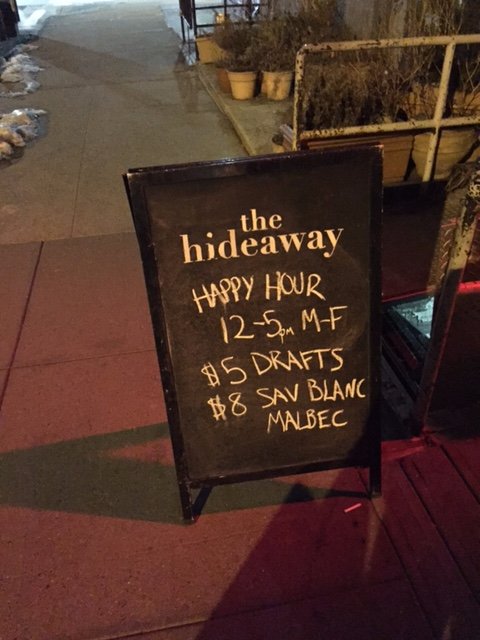 the
hideaway
HAPPY HOUR
12-5pm M-F
$5 DRAFTS
$8 SAV BLANC
MALBEC